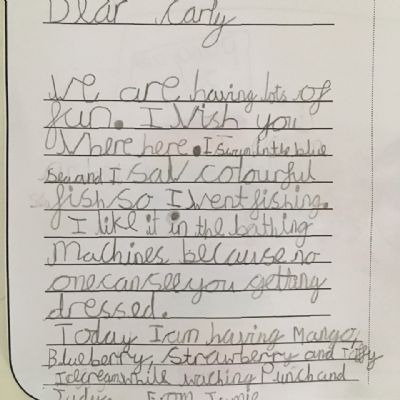 Dear Carly
We are having lots of
fun. I Wish you
Where here. I Swum in the blue
Sea and I Saw colourful
fish so I went fishing.
I like it in the bathing
Machines because no
one can see you getting
dressed.
Today I am having Mango,
Blueberry, Strawberry and
Icecream while waching Punch and
Judy. From Jamie